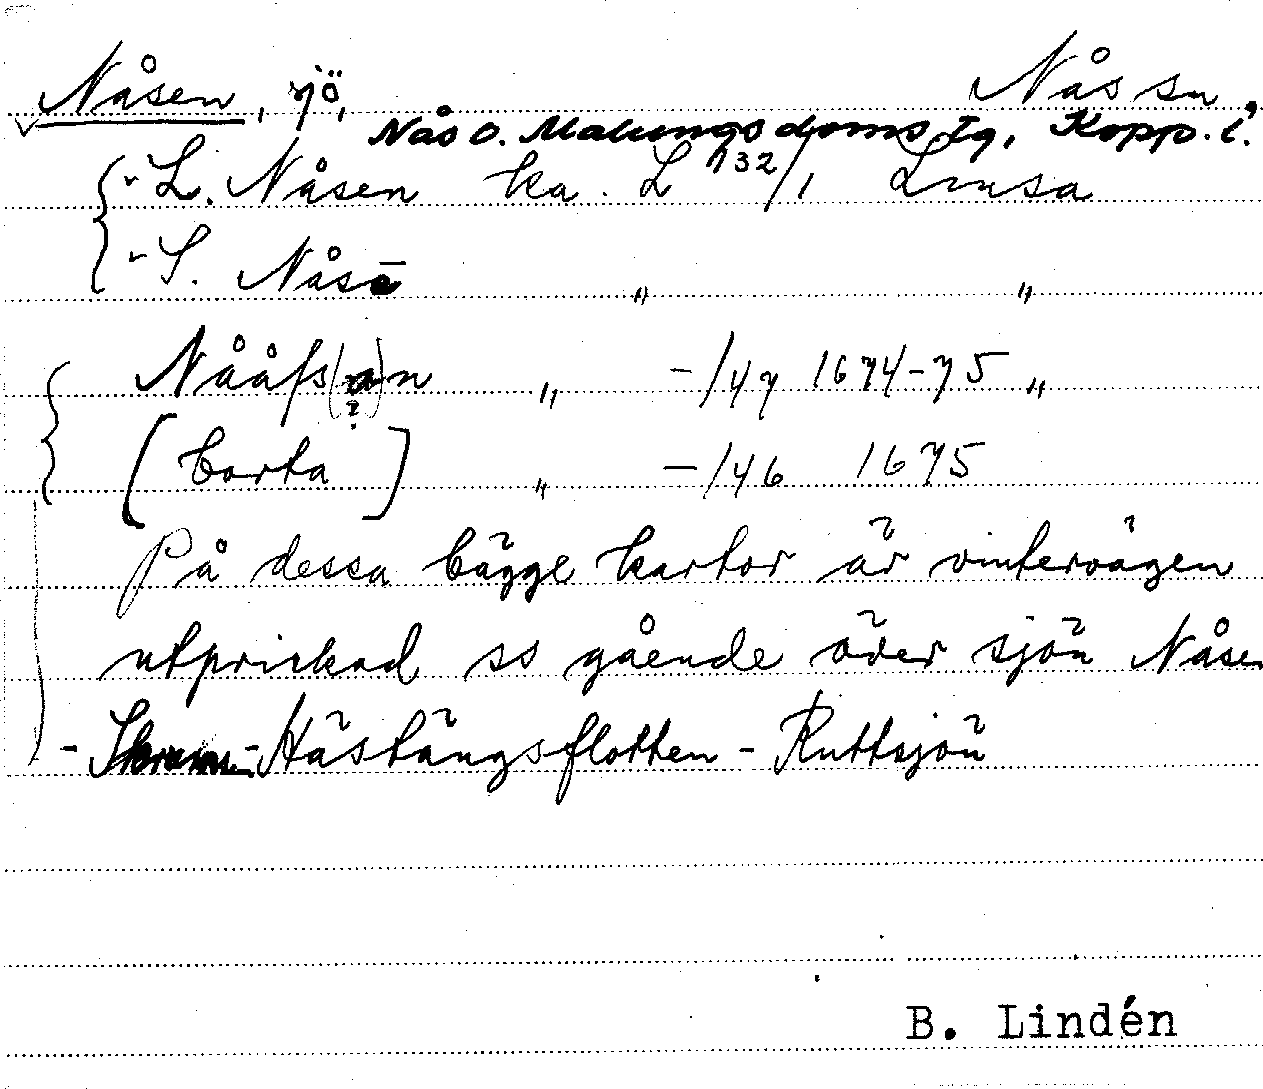 Nåsen, sjö, Nås sn
Nås o. Malungs doms Tg, Kopp. l.
L. Nåsen ka. L 132/1 Lmsa
S. Nåsē " "
Nååfs(a)n " -/47 1674-75 "
?
[borta] " -/46 1675
På dessa bägge kartor är vintervägen
utprickad ss gående över sjön Nåsen
- - Hästängsflotten - Ruttsjön
B. Lindén